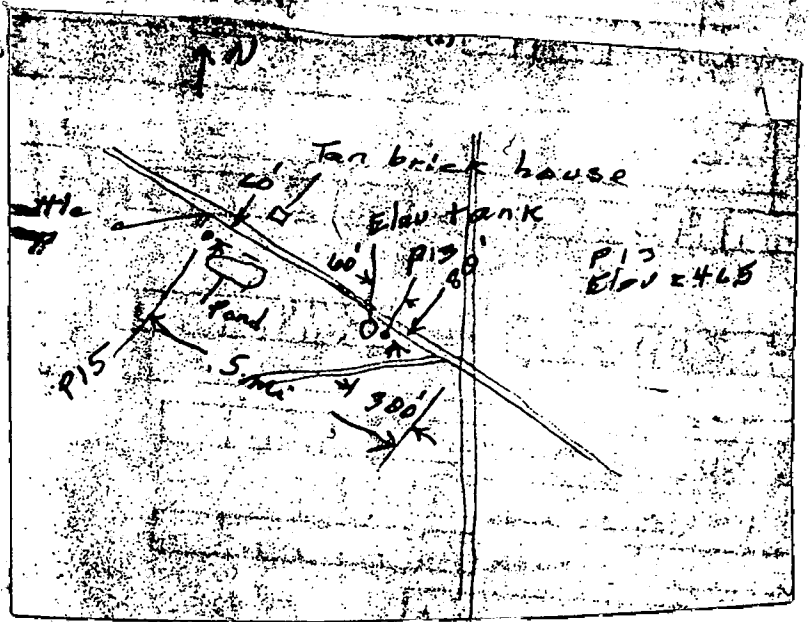 N
Tan brick house
Elev tank
60'
P13
80'
P13
Elev = 465
Pond
P15
.5 mi
300'